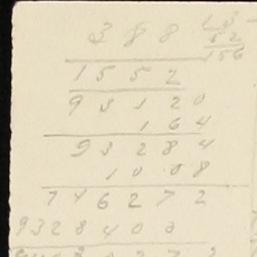 3 8 8
1 3
156
1 5 5 2
9 3 1 2 0
1 6 4
9 3 2 8 4
1 0 0 8
7 4 6 2 7 2
9 3 2 8 4 0 0